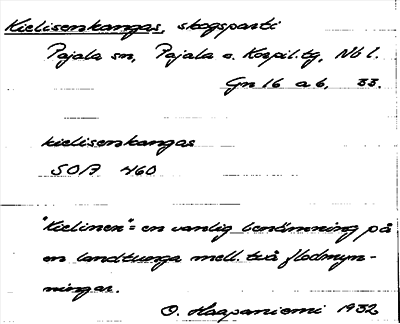 Kielisenkangas, skogsparti
Pajala sn, Pajala o. Korpil. tg, Nb l.
Gn 16 a 6, 33.
kielisenkangas
SOA 460
"Kielinen" = en vanlig benämning på
en landtunga mell. två flodmyn-
ningar.
O. Haapaniemi 1932